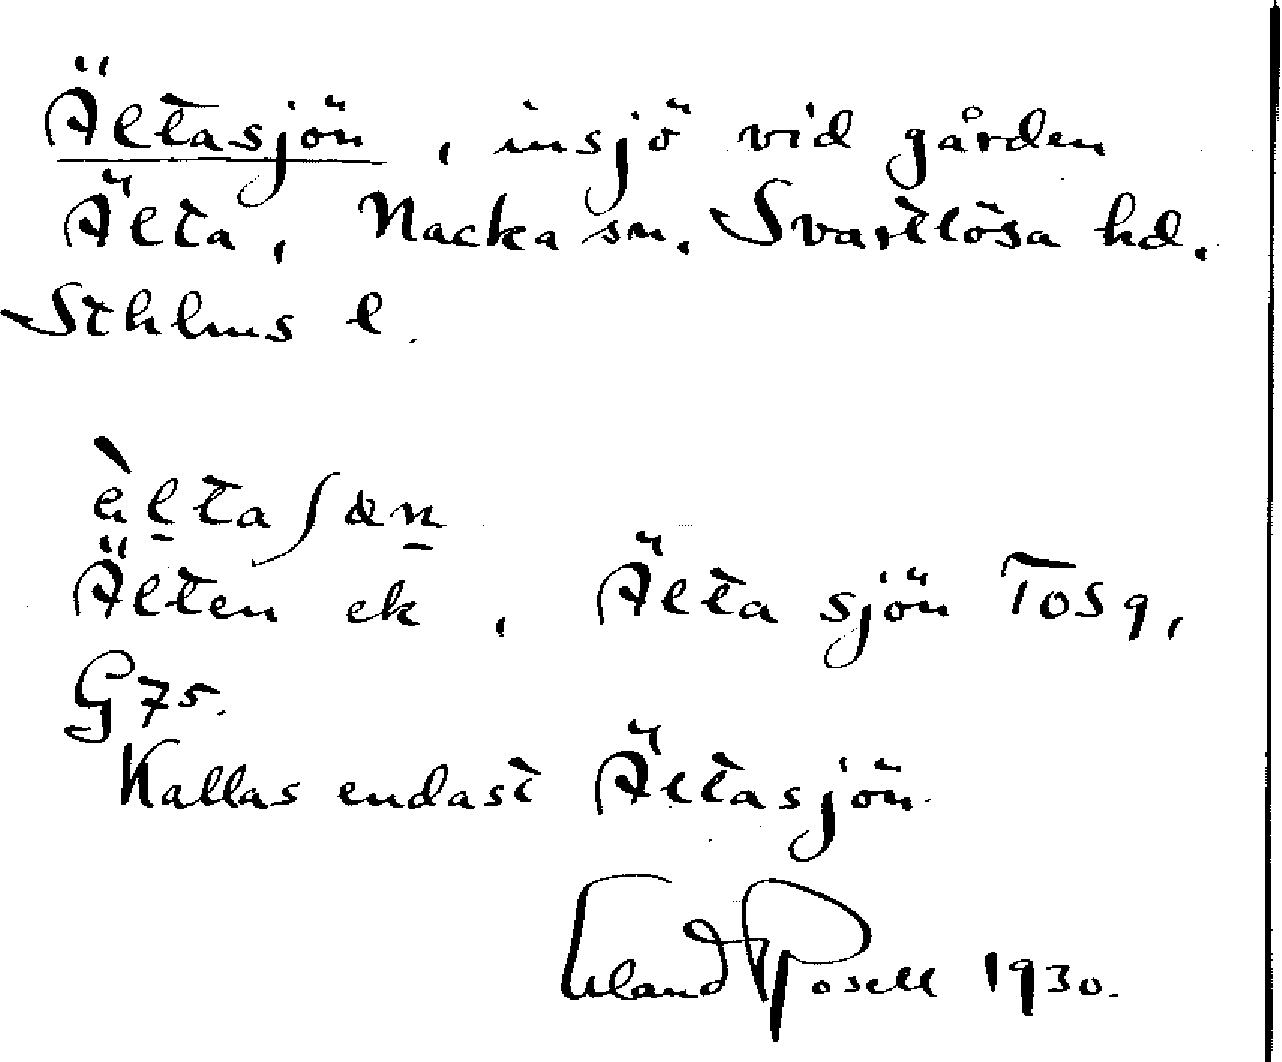 Ältasjön, insjö vid gården
Älta, Nacka sn. Svartlösa hd.
Sthlms l.
Älten ek, Älta sjön Tosq,
G 75.
Kallas endast Ältasjön.
Erland Rosell 1930.